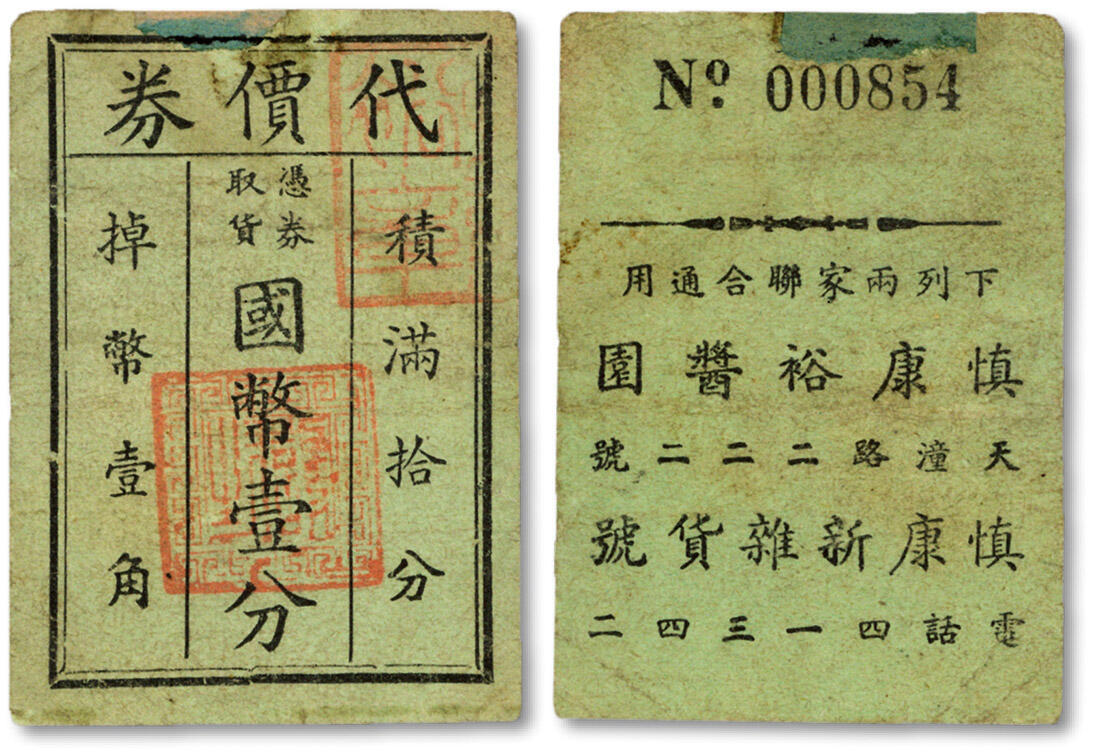 代價券
積滿拾分
憑券
取貨
國幣壹分
掉幣壹角
Nº. 000854
下列兩家聯合通用
慎康裕醬園
天潼路二二二號
慎康新雜貨號
電話四一三四二